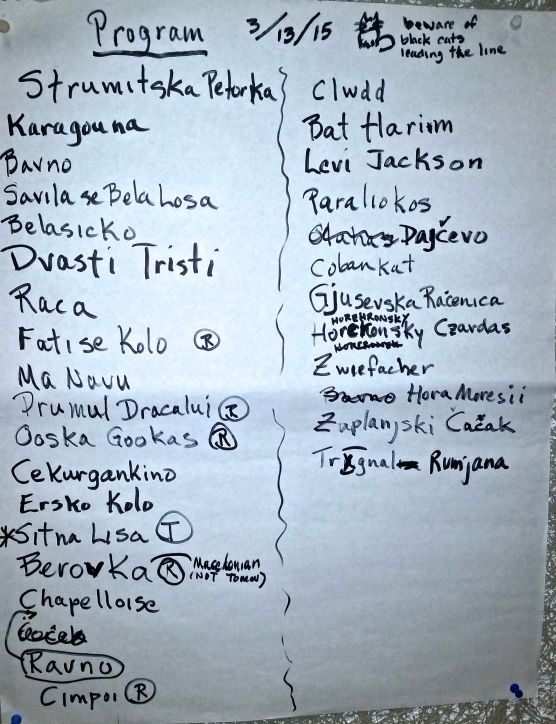 Program 3/13/15
beware of
black cats
leading the line
Strumitska Petorka
Karagouna
Bavno
Savila se Bela Losa
Belasicko
Dvasti Tristi
Raca
Fatise Kolo R
Ma Navu
Drumul Dracalui T
Ooska Gookas R
Cekurgankino
Ersko Kolo
*Sitna Lisa T
Berovka R Macedonian
(NOT TOMOV)
Chapelloise
Ravno
Cimpoi R
Clwdd
Bat Hariim
Levi Jackson
Paraliokos
Dajčevo
Cobankat
Gjusevska Račenica
HOREHRONSKY
Horekonsky Czardas
Zwiefacher
Hora Moresii
Zuplanjski Čačak
Trignal Rumjana